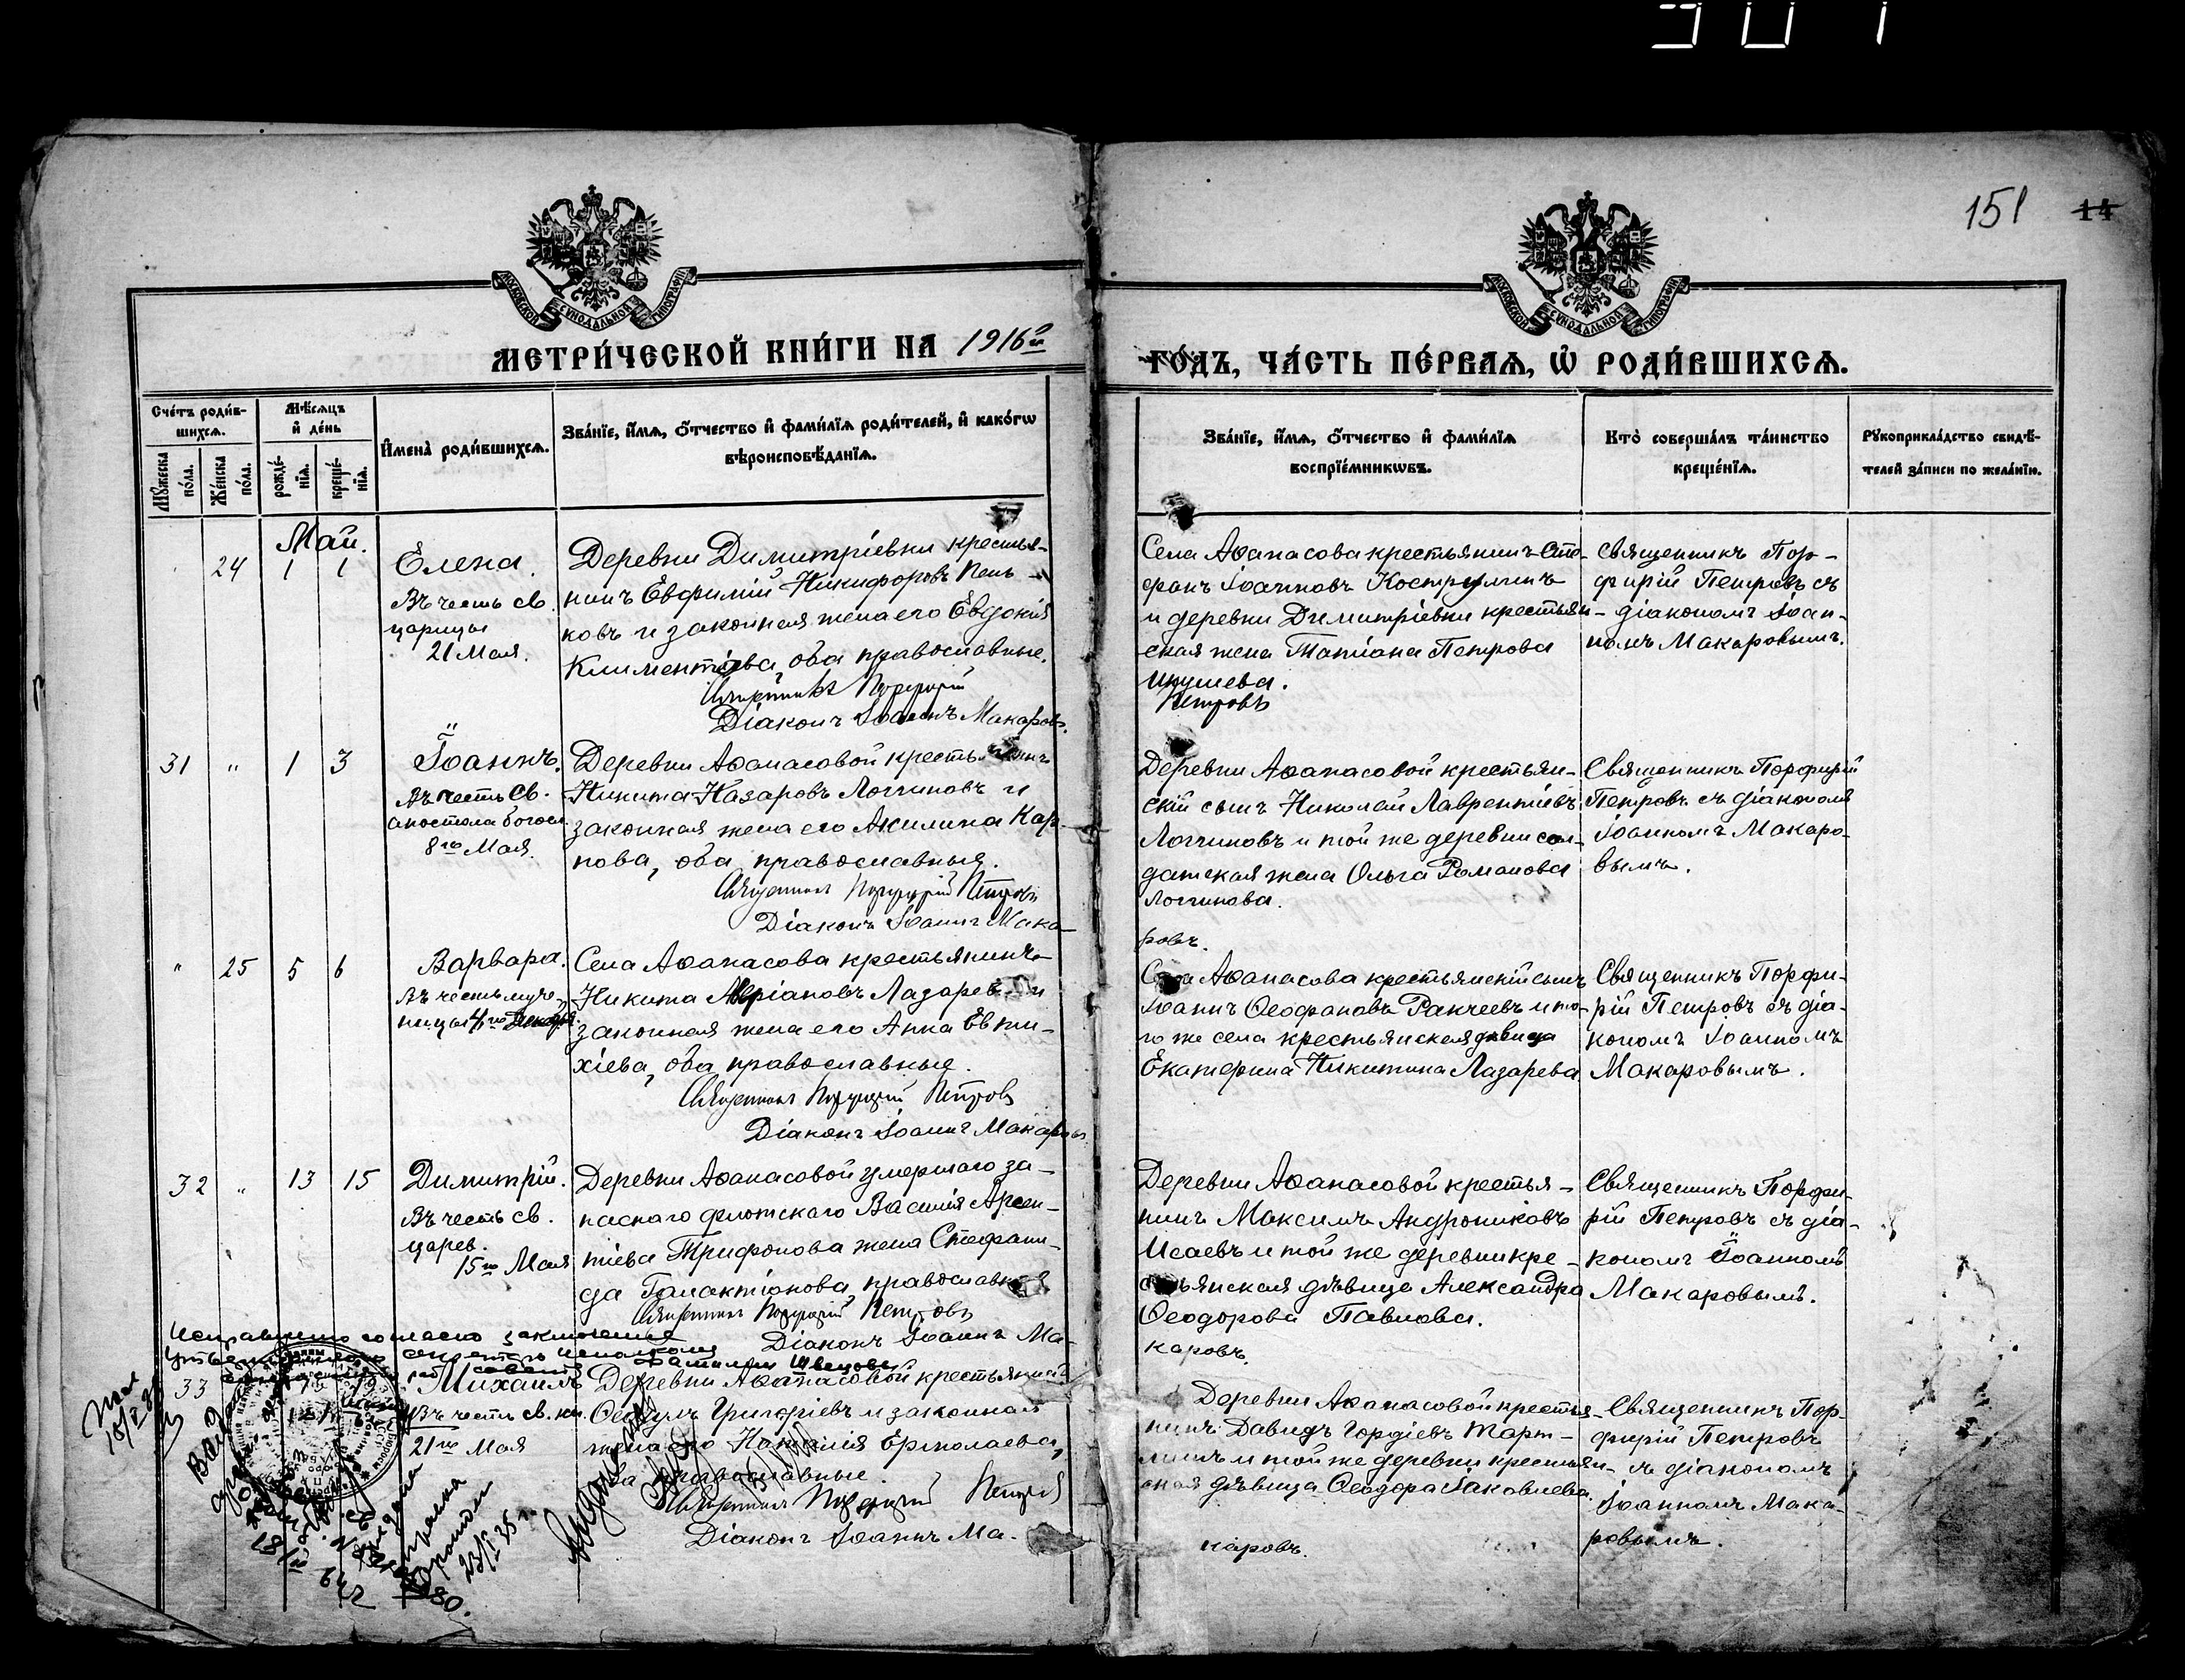 151 14
МОСКОВСКОЙ СѴНОДАЛЬНОЙ ТИПОГРАФІИ
МОСКОВСКОЙ СѴНОДАЛЬНОЙ ТИПОГРАФІИ
МЕТРИ́ЧЕСКОЙ КНИ́ГИ НА 1916й
ГО́ДЪ, ЧА́СТЬ ПЕ́РВАѦ, Ѡ҆ РОДИ́ВШИХСѦ.
Сче́тъ роди́в-
шихсѧ.
Мꙋ́жеска по́ла.
Же́нска по́ла.
Мѣ́сѧцъ и҆ де́нь
рожде́-нїѧ.
креще́-нїѧ.
И҆мена̀ роди́вшихсѧ.
Зва́нїе, и҆́мѧ, ѻ҆́тчество и҆ фами́лїѧ роди́телей, и҆ како́гѡ
вѣроисповѣ́данїѧ.
Зва́нїе, и҆́мѧ, ѻ҆́тчество и҆ фами́лїѧ
воспрїе́мникѡвъ.
Кто̀ соверша́лъ та́инство
креще́нїѧ.
Рꙋкоприкла́дство свидѣ́-
телей за́писи по жела́нїю.
Май.
24 1 1
Елена.
Въ честь св.
царицы
21 Мая.
Деревни Димитріевки крестья-
нинъ Евфимій Никифоровъ Пень-
ковъ и законная жена его Евдокія
Климентіева, оба православные.
Священникъ Порфирій
Діаконъ Іоаннъ Макаровъ.
Села Аѳанасова крестьянинъ Сте-
фанъ Іоанновъ Кострулинъ
и деревни Димитріевки крестьян-
ская жена Татіана Петрова
Петровъ
Священникъ Пор-
фирій Петровъ съ
діакономъ Іоан-
номъ Макаровымъ.
31 " 1 3
Іоаннъ.
Въ честь св.
апостола богосл.
8го Мая.
Деревни Аѳанасовой крестьянинъ
Никита Назаровъ Логгиновъ и
законная жена его Акилина Кар-
пова, оба православные.
Священникъ Порфирій Петровъ
Діаконъ Іоаннъ Мака-
Деревни Аѳанасовой крестьян-
скій сынъ Николай Лаврентіевъ
Логгиновъ и той же деревни сол-
датская жена Ольга Романова
Логгинова.
ровъ.
Священникъ Порфирій
Петровъ съ діакономъ
Іоанномъ Макаро-
вымъ.
" 25 5 6
Варвара.
Въ честь муче-
ницы 4го Декабря.
Села Аѳанасова крестьянинъ
Никита Адріановъ Лазаревъ и
законная жена его Анна Евти-
хіева, оба православные.
Священникъ Порфирій Петровъ
Діаконъ Іоаннъ Макаровъ
Села Аѳанасова крестьянскій сынъ
Іоаннъ Ѳеофановъ Ракчеевъ и то-
го же села крестьянская дѣвица
Екатерина Никитина Лазарева.
Священникъ Порфи-
рій Петровъ съ діа-
кономъ Іоанномъ
Макаровымъ.
32 " 13 15
Димитрій.
Въ честь св.
царев.
15го Мая
Деревни Аѳанасовой умершаго за-
паснаго флотскаго Василія Арсен-
тіева Трифонова жена Стефани-
да Галактіонова, православная
Священникъ Порфирій Петровъ
Діаконъ Іоаннъ Ма-
Деревни Аѳанасовой крестья-
нинъ Максимъ Андрониковъ
Исаевъ и той же деревни кре-
стьянская дѣвица Александра
Ѳеодорова Павлова.
каровъ.
Священникъ Порфи-
рій Петровъ съ діа-
кономъ Іоанномъ
Макаровымъ.
Исправлено согласно заключенья
фамилии Швецовы
33
Михаилъ
Въ честь св. кн.
21го Мая
Деревни Аѳанасовой крестьянинъ
Григоріевъ и законная
жена его Наталія Ермолаева,
оба православные.
Священникъ Порфирій Петровъ
Діаконъ Іоаннъ Ма-
Деревни Аѳанасовой крестья-
нинъ Давидъ Гордіевъ Март-
и той же деревни крестьян-
ская дѣвица Ѳеодора Іаковлева.
каровъ.
Священникъ Пор-
фирій Петровъ
съ діакономъ
Іоанномъ Мака-
ровымъ.